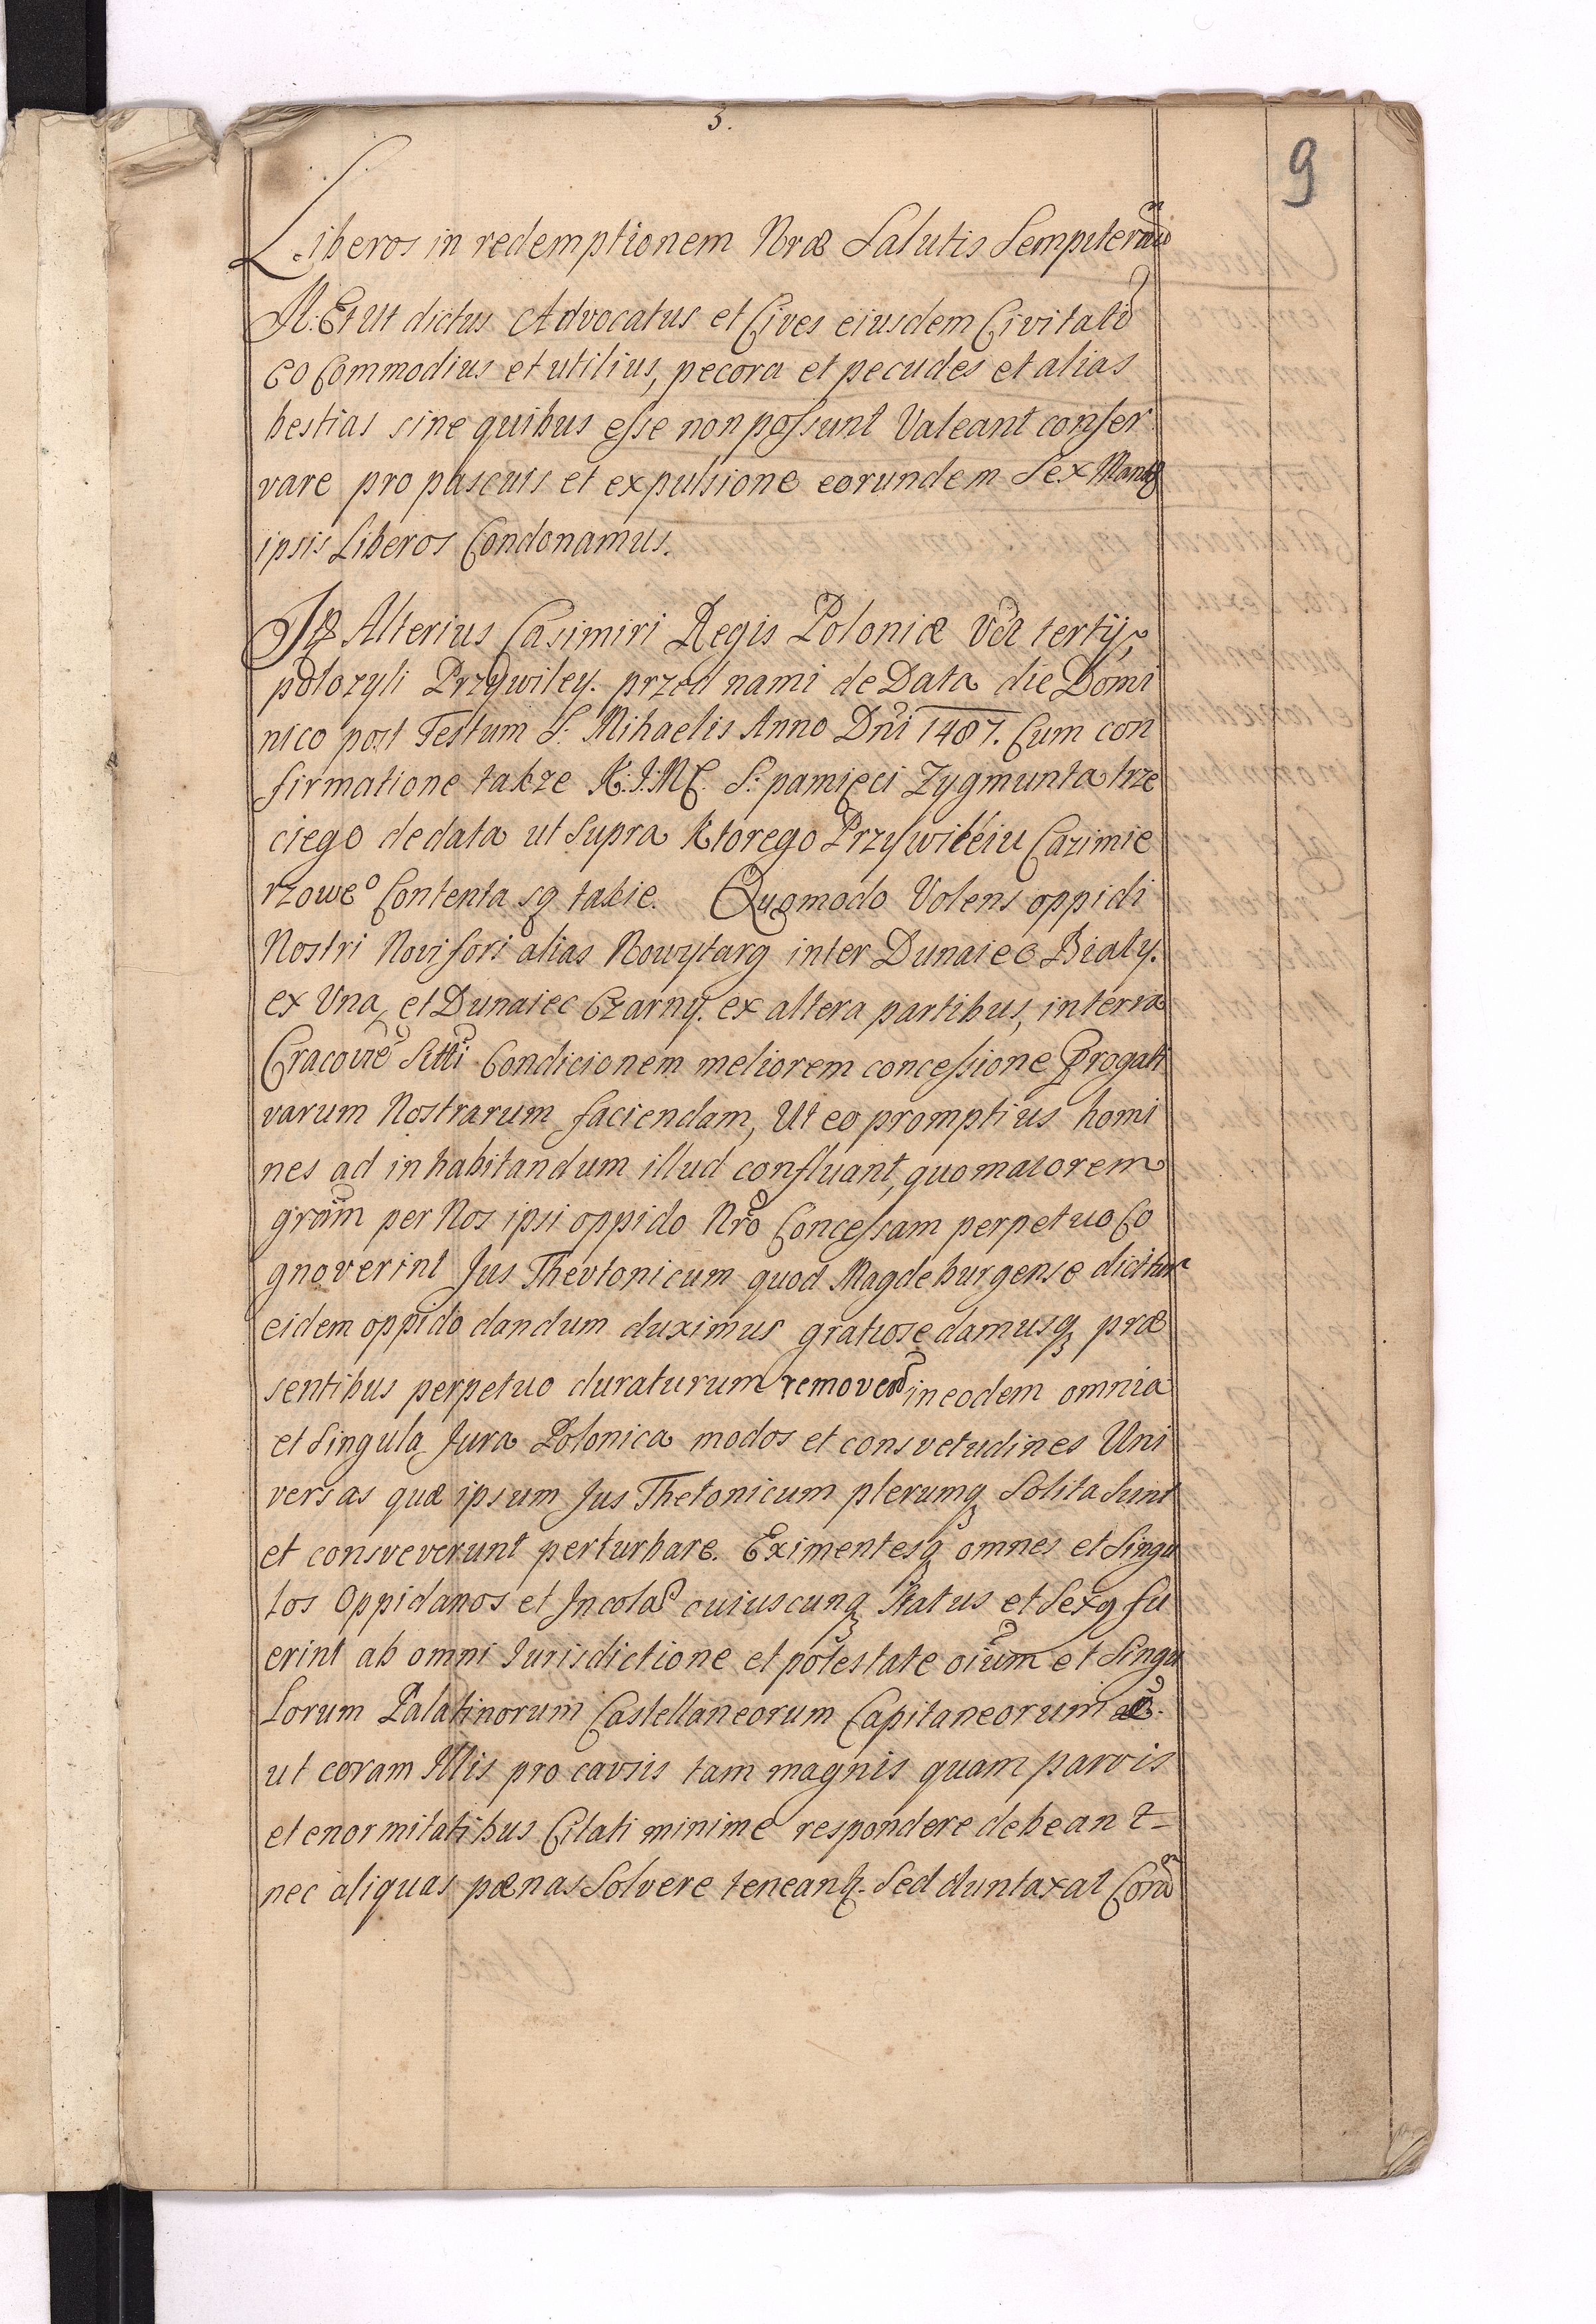 3.
9
Liberos in redemptionem Nræ Salutis Sempiternæ
M: Et ut dictus Advocatus et Cives eiusdem Civitatis
eo Commodius et utilius, pecora et pecudes et alias
bestias sine quibus esse non possunt Valeant conser
vare pro pascuis et expulsione eorundem Sex Mansos
ipsis Liberos Condonamus.
Alterius Casimiri Regis Poloniæ tertij,
polozyli Przywiley. przed nami de Data die Domi
nico post Festum S: Mihaelis Anno Dni 1487. Cum con
firmatione takze K:J:MC. S: pamięci Zygmunta trze
ciego de data ut Supra Ktorego Przywileiu Cazimie
rzoweo Contenta są takie. Quomodo Volens oppidi
Nostri Novi fori alias Nowytarg inter Dunaiec Biały.
ex Una, et Dunaiec Czarny. ex altera partibus, in terra
Cracovie Sitti Condicionem meliorem concessione Prrogati
varum Nostrarum faciendam, Ut eo promptius homi
nes ad inhabitandum illud confluant, quo maiorem
gram per Nos ipsi oppido Nro Concessam perpetuo Co
gnoverint Jus Thevtonicum quod Magdeburgense dicitur
eidem oppido dandum duximus gratiose damusq præ
sentibus perpetuo duraturum removen in eodem omnia
et Singula Jura Polonica modos et consvetudines Uni
versas quæ ipsum Jus Thetonicum plerumq Solita Sunt
et consveverunt perturbare. Eximentesq omnes et Singu
los Oppidanos et Incolas cuiuscunq Status et Sexq fu
erint ab omni Jurisdictione et potestate oium et Singu
Lorum Palatinorum Castellaneorum Capitaneorum
ut coram Illis pro cavsis tam magnis quam parvis
et enormitatibus Citati minime respondere debeant
nec aliquas pænas Solvere teneant. Sed duntaxat Coram